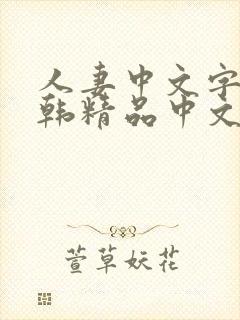 人妻中文字
韩精品中文
萱草妖花